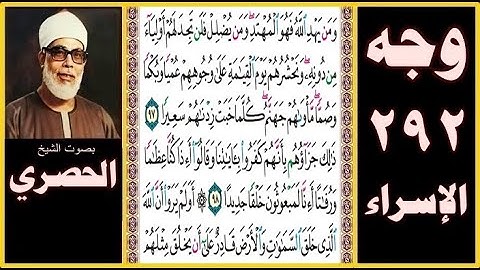 وجه
٢٩٢
الإسراء
وَمَن يَهْدِ ٱللَّهُ فَهُوَ ٱلْمُهْتَدِ وَمَن يُضْلِلْ فَلَن تَجِدَ لَهُمْ أَوْلِيَآءَ
مِن دُونِهِۦ وَنَحْشُرُهُمْ يَوْمَ ٱلْقِيَٰمَةِ عَلَىٰ وُجُوهِهِمْ عُمْيًا وَبُكْمًا
وَصُمًّا مَّأْوَىٰهُمْ جَهَنَّمُ كُلَّمَا خَبَتْ زِدْنَٰهُمْ سَعِيرًا ٩٧
ذَٰلِكَ جَزَآؤُهُم بِأَنَّهُمْ كَفَرُوا۟ بِـَٔايَٰتِنَا وَقَالُوٓا۟ أَءِذَا كُنَّا عِظَٰمًا
وَرُفَٰتًا أَءِنَّا لَمَبْعُوثُونَ خَلْقًا جَدِيدًا ٩٨ ۞ أَوَلَمْ يَرَوْا۟ أَنَّ ٱللَّهَ
ٱلَّذِى خَلَقَ ٱلسَّمَٰوَٰتِ وَٱلْأَرْضَ قَادِرٌ عَلَىٰٓ أَن يَخْلُقَ مِثْلَهُمْ
بصوت الشيخ
الحصري